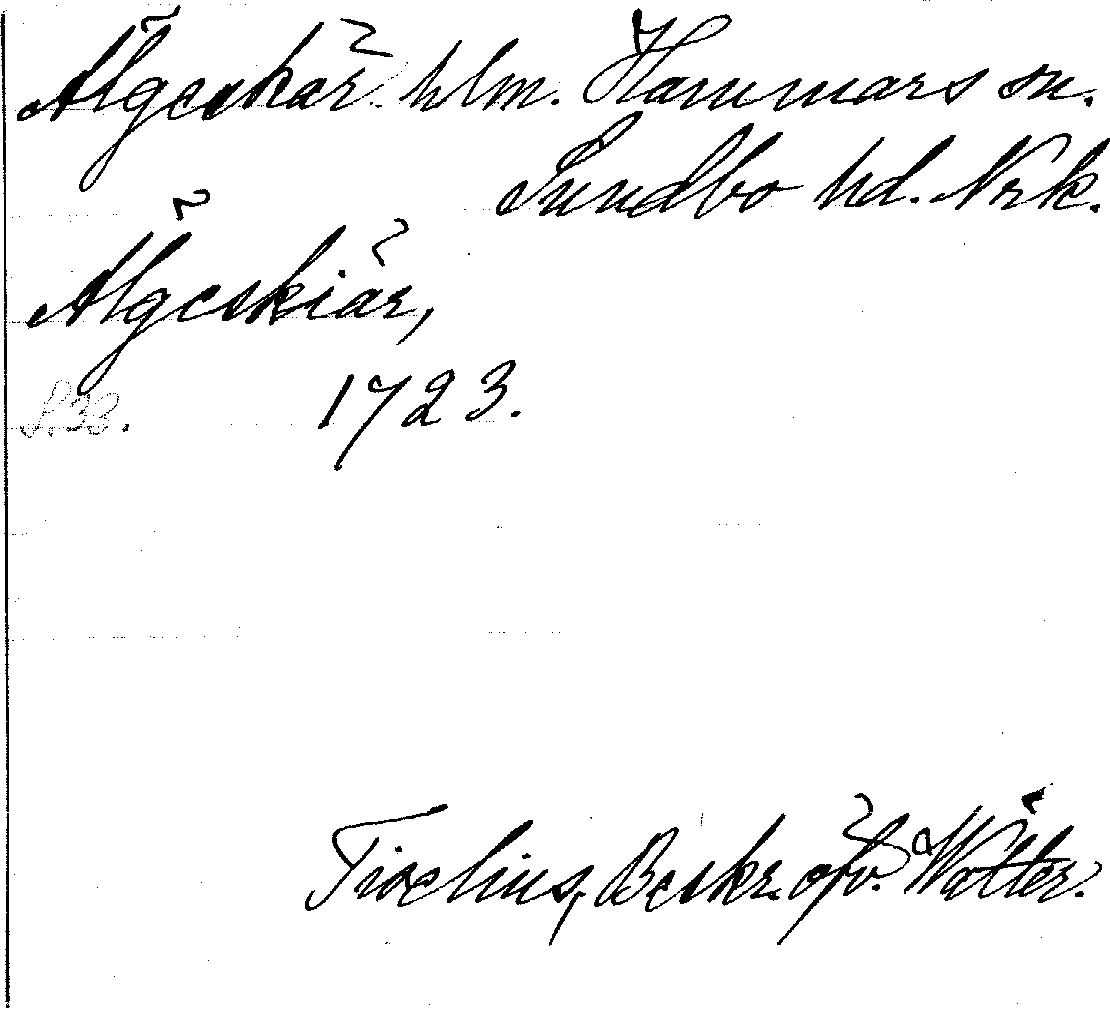 Älgeskär hlm. Hammars sn.
Sundbo hd. Nrk.
Älgeskiär,
S. 38. 1723.
Tiselius, Beskr. öfv. Wätter.